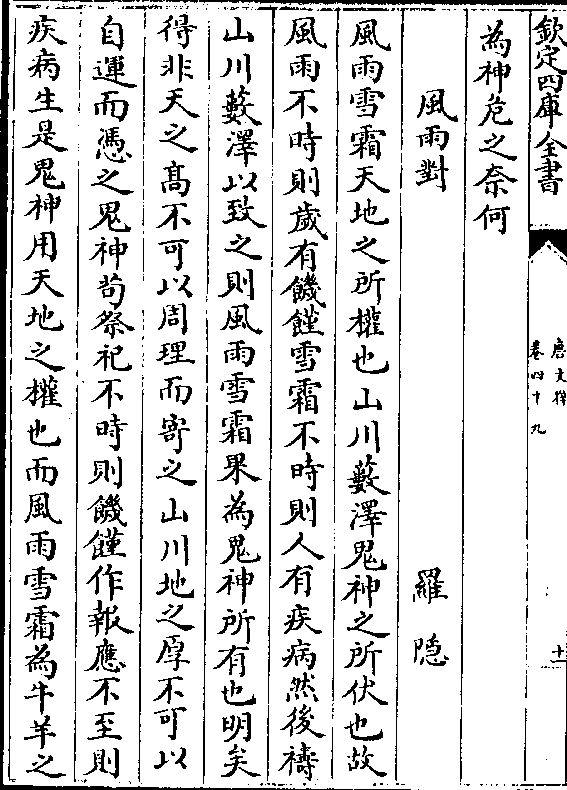 欽定四庫全書
唐文粹
卷四十九
十一
為神危之奈何
風雨對
羅隱
風雨雪霜天地之所權也山川藪澤鬼神之所伏也故
風雨不時則歲有饑饉雪霜不時則人有疾病然後禱
山川藪澤以致之則風雨雪霜果為鬼神所有也明矣
得非天之髙不可以周理而寄之山川地之厚不可以
自運而憑之鬼神茍祭祀不時則饑饉作報應不至則
疾病生是鬼神用天地之權也而風雨雪霜為牛羊之